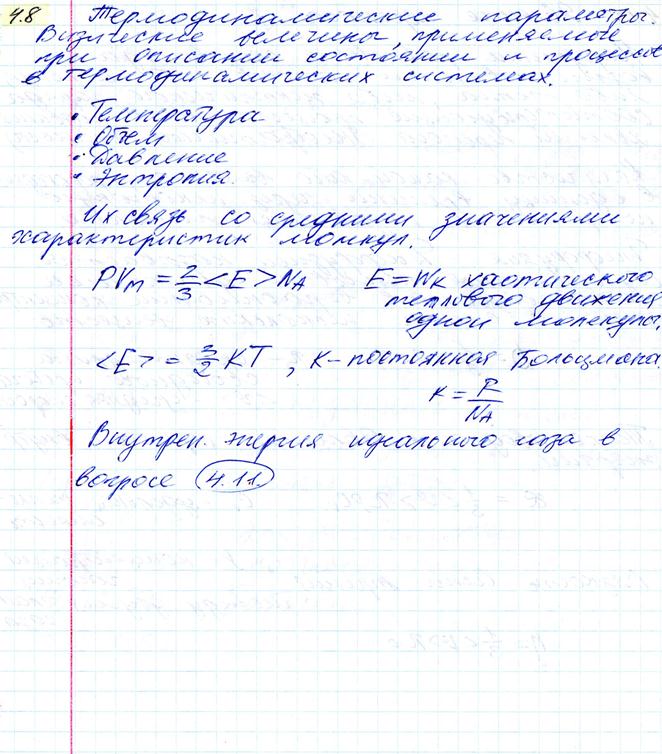 4.8 Термодинамические параметры.
Физические величины, применяемые
при описании состоянии и процессов
в термодинамических системах.
• Температура
• Объем
• Давление
• Энтропия.
Их связь со средними значениями
характеристик молекул.
PVm = 2/3 <E> NA E = Wк хаотического
теплового движения
одной молекулы,
<E> = 3/2 KT, K - постоянная Больцмана.
K = R/NA
Внутрен. энергия идеального газа в
вопросе 4.11.